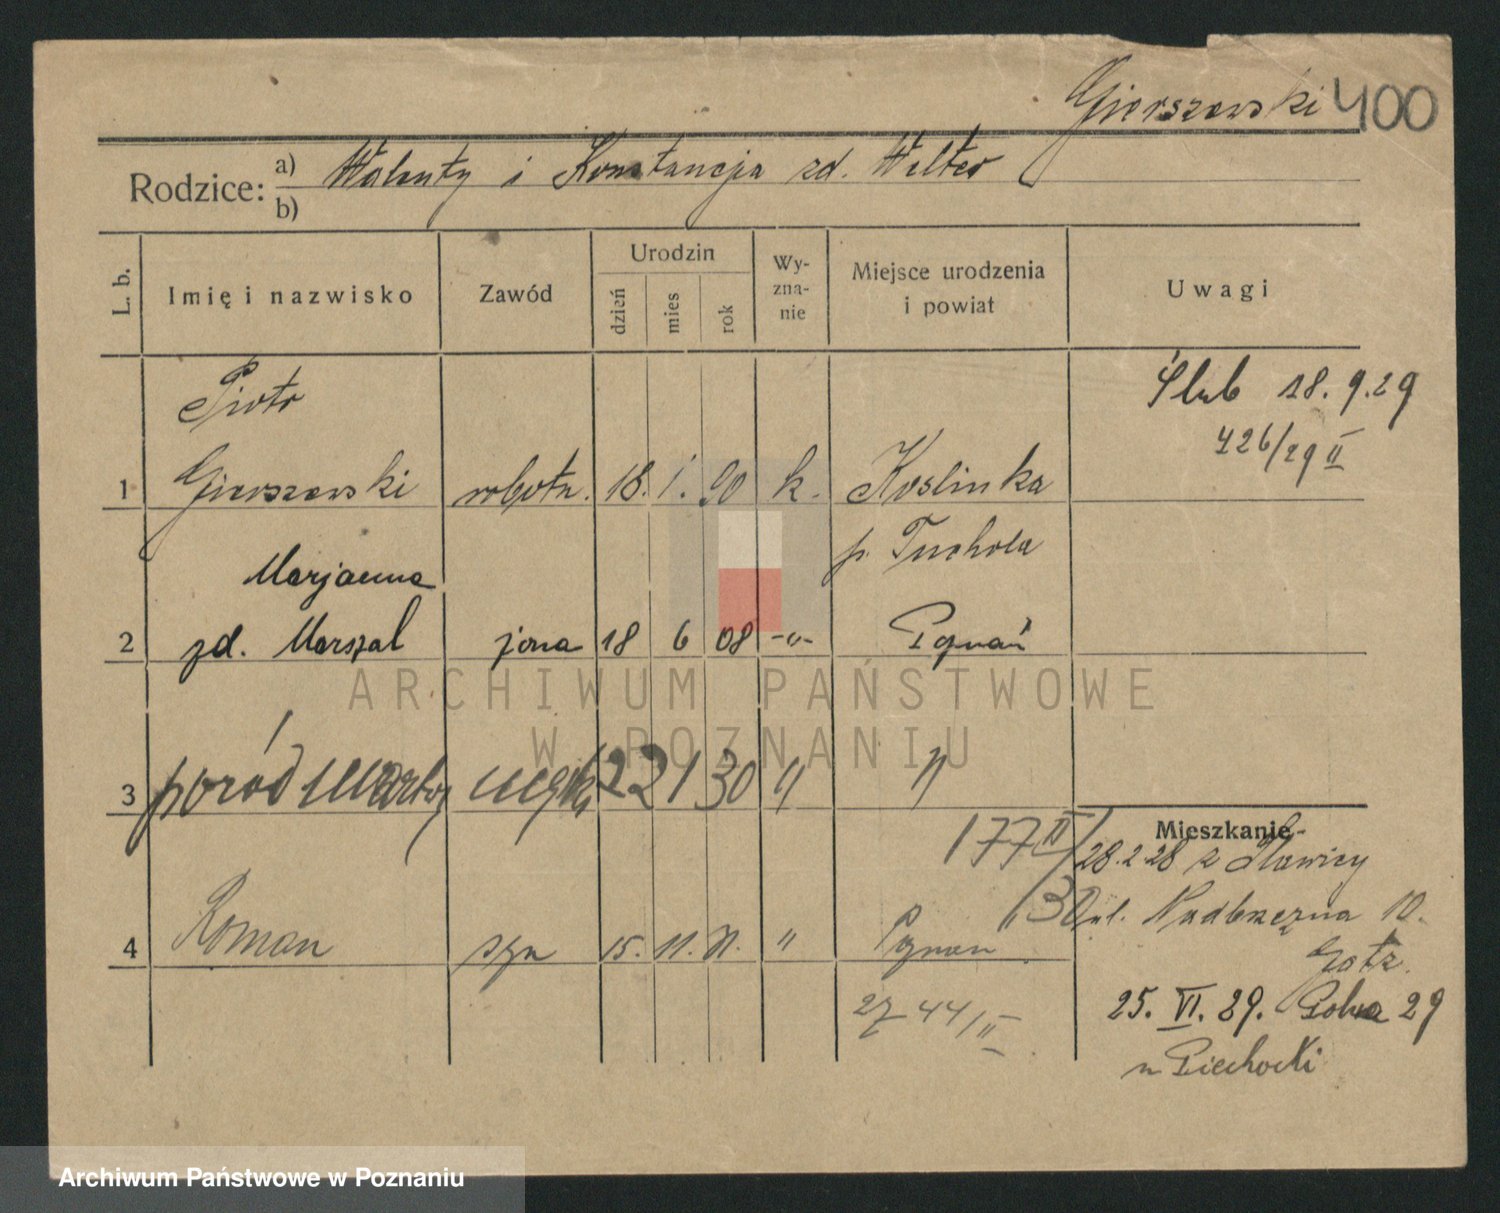 Gierszewski 400
Rodzice: a) Walenty i Konstancja zd. Welter
b)
L. b. Imię i nazwisko Zawód Urodzin dzień mies rok Wy-zna-nie Miejsce urodzenia i powiat Uwagi
Piotr
Ślub 18. 9. 29
426/29 II
1 Gierszewski robotn. 18. 1. 90 k. Koslinka
p. Tuchola
Marjanna
2 zd. Marszal żona 18 6 08 -"- Poznań
3 poród martwy męski 22 1 30 " "
177 II/30
4 Roman syn 15. 11. 31. " Poznań
2744/II
Mieszkanie
28.2.28 z Ławicy
ul. Nadbrzeżna 10.
25. VI. 29. Polna 29
u Piechocki
ARCHIWUM PAŃSTWOWE
W POZNANIU
Archiwum Państwowe w Poznaniu